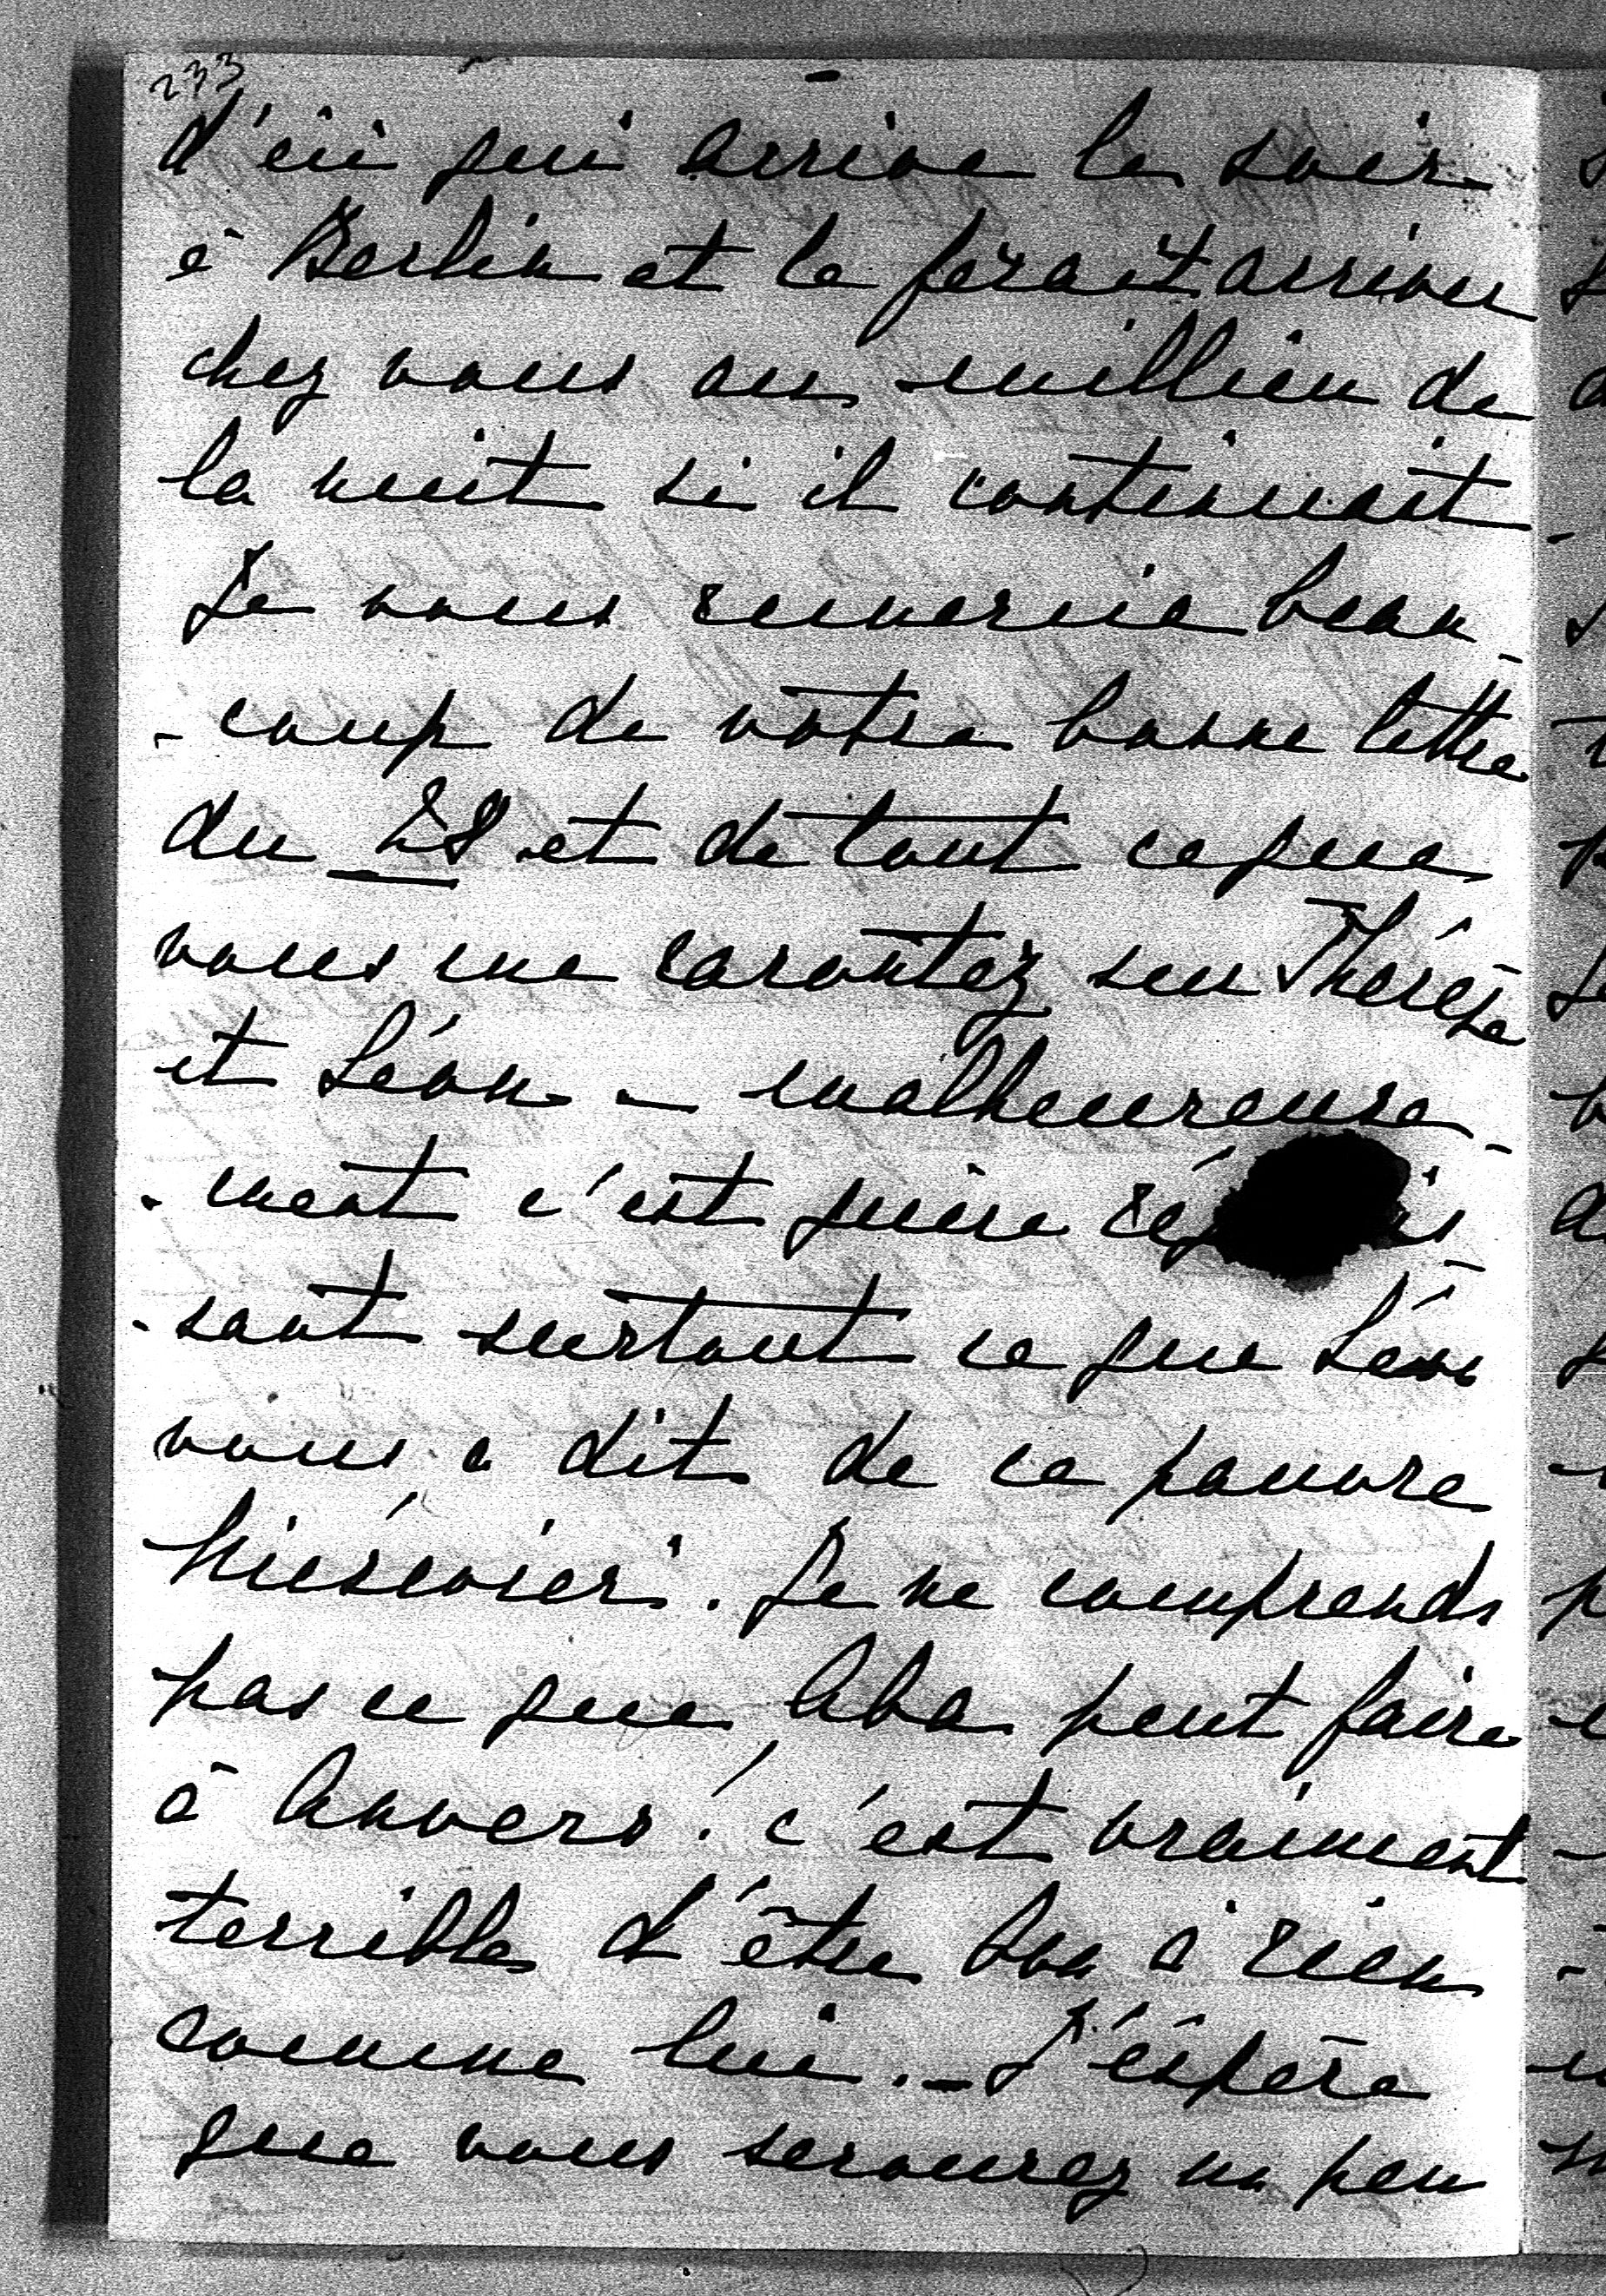 233
d'ici qui arrive le soir
à Berlin et le ferait arriver
chez vous au millieu de
la nuit si il continuait
Je vous remercie beau-
-coup de votre bonne lettre
du 28 et de tout ce que
vous me racontez sur Thérèse
et Léon. - malheureuse-
-ment c'est guère
-sant surtout ce que Léon
vous a dit de ce pauvre
. Je ne comprends
pas ce que Aba peut faire
à Anvers! c'est vraiment
terrible d'être bon à rien
comme lui. - J'éspère
que vous secourez un peu